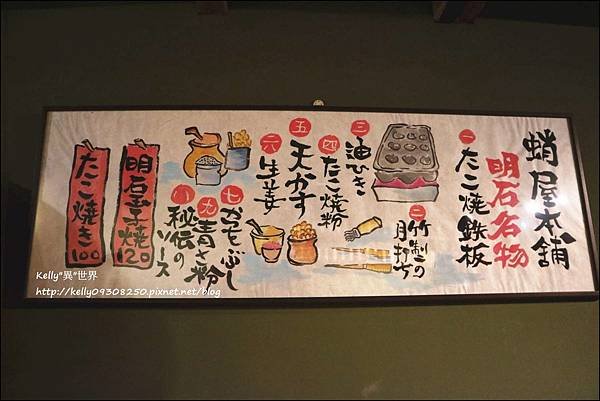 蛸屋本舗
明石名物
一 たこ焼鉄板
二 竹製の
目打ち
三 油ひき
四 たこ焼粉
五 天かす
六 生姜
七 かつをぶし
九 青さ粉
八 秘伝の
ソース
明石玉子焼
120
たこ焼き
100
Kelly"異"世界
http://kelly09308250.pixnet.net/blog